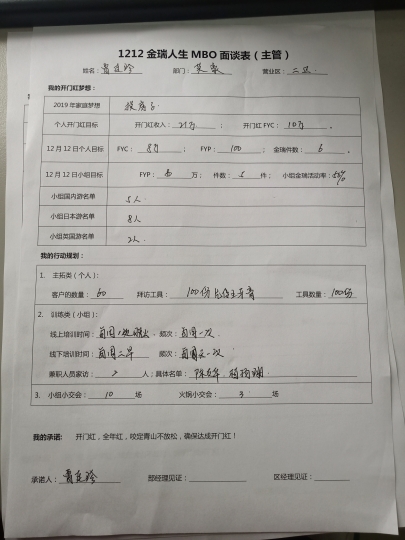 1212 金瑞人生 MBO 面谈表（主管）
姓名： 部门： 营业区：二区
我的开门红梦想：
2019 年家庭梦想 换房子
个人开门红目标 开门红收入： 万 开门红 FYC： 10万 。
12 月 12 日个人目标 FYC： 8万 ； FYP： 100 ； 金瑞件数： 6 。
12 月 12 日小组目标 FYP： 万； 件数： 5 件； 小组金瑞活动率：
小组国内游名单 5人.
小组日本游名单 8人
小组英国游名单 2人.
我的行动规划：
1. 主拓类（个人）：
客户的数量： 60 拜访工具： 100份 牙膏 工具数量： 100份
2. 训练类（小组）：
线上培训时间： 每周 晚 频次： 每周一次
线下培训时间： 每周二早 频次： 每周 一次
兼职人员家访： 2 人；具体名单：
3. 小组小交会： 10 场 火锅小交会： 3 场
我的承诺： 开门红，全年红，咬定青山不放松，确保达成开门红！
承诺人： 部经理见证： 区经理见证：